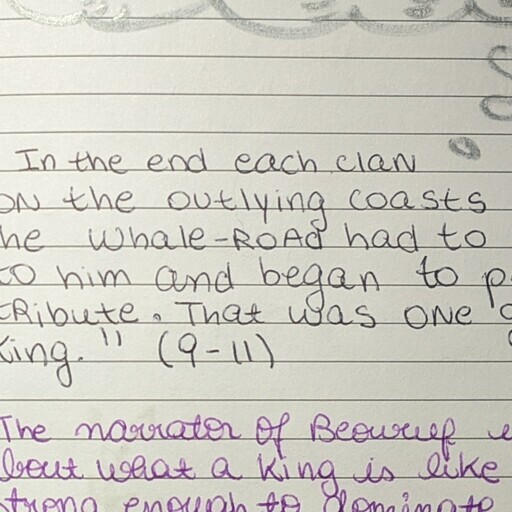 In the end each clan
on the outlying coasts
whale-road had to
him and began to
tribute. That was one
king." (9-11)
The narrator of Beowulf
what a king is like
enough to